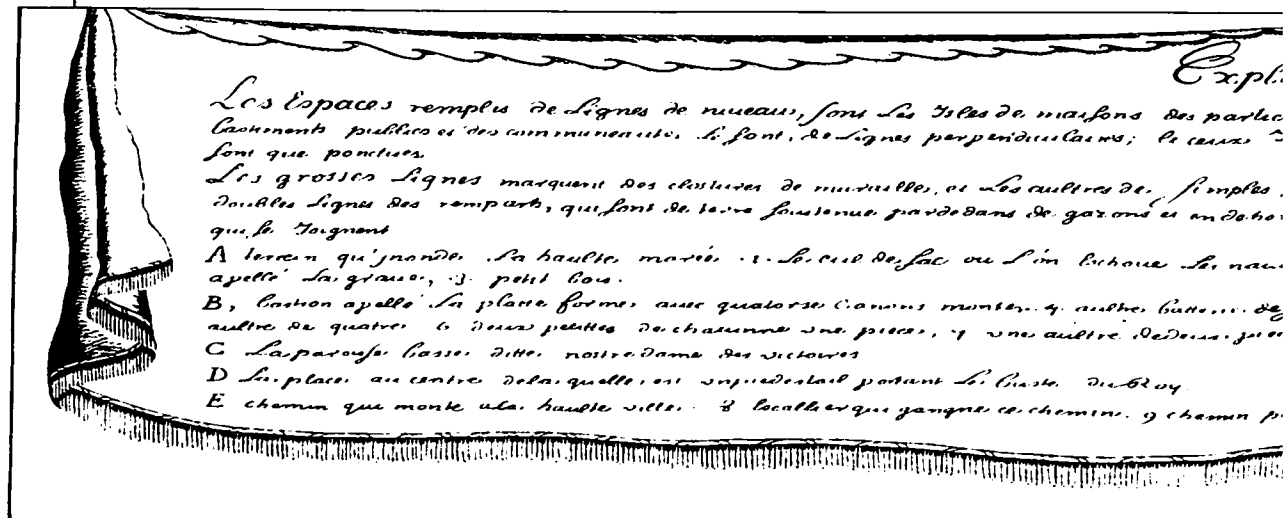 Expli
Les Espaces remplis de Lignes de niveau, sont Les Isles de maisons des partic
bastiments publics et des communeautés Le sont, de Lignes perpendiculaires; le ceux
sont que ponctues
Les grosses Lignes marquent des clostures de murailles, et Les aultres de simples
doubles Lignes des remparts, qui sont de terre soustenue pardedans de gazons et en dehor
qui se Joignent
A terrain qu'jnonde La haulte marée. 1. Le cul de sac ou L'on Echoue Les nau
apellé La graue, 3. petit bois.
B, bastion apellé La platte forme auec quatorse Canons montez. 4. aultre batterie de
aultre de quatre 6 deux petittes de chacunne vne piece, 7 vne aultre de deux pie
C La paroisse basse ditte nostre dame des victoires
D La place au centre de laquelle est vn piedestail portant Le buste du Roy
E chemin qui monte a la haulte ville. 8 Locallier qui gangne ce chemin. 9 chemin p